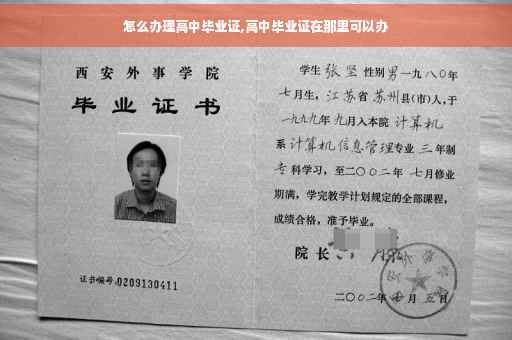 怎么办理高中毕业证,高中毕业证在那里可以办
西安外事学院
毕业证书
证书编号:0209130411
学生 张坚 性别 男 一九八〇年
七月生，江苏省 苏州县(市)人,于
一九九九年 九月入本院 计算机
系 计算机信息管理专业 三 年制
专 科学习，至二〇〇二年 七月修业
期满，学完教学计划规定的全部课程，
成绩合格，准予毕业。
院长
二〇〇二年 月 五 日